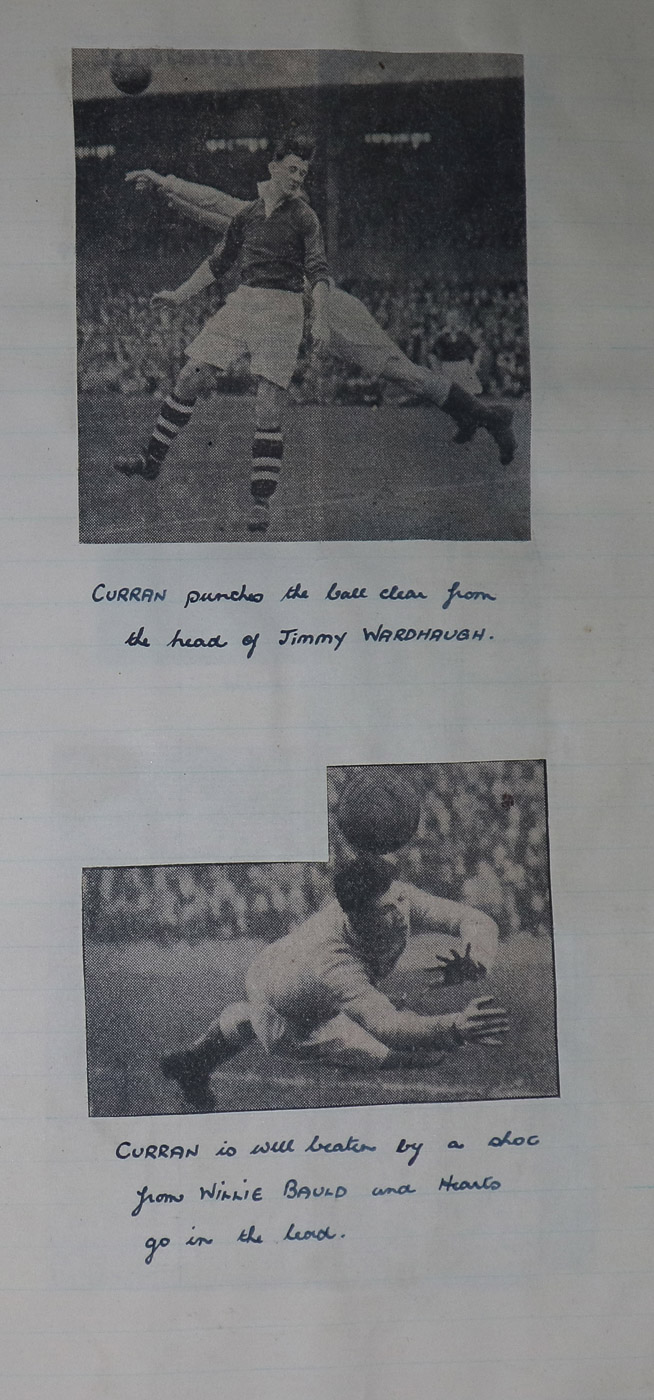 CURRAN punches the ball clear from
the head of Jimmy WARDHAUGH.
CURRAN is well beaten by a shot
from WILLIE BAULD and Hearts
go in the lead.